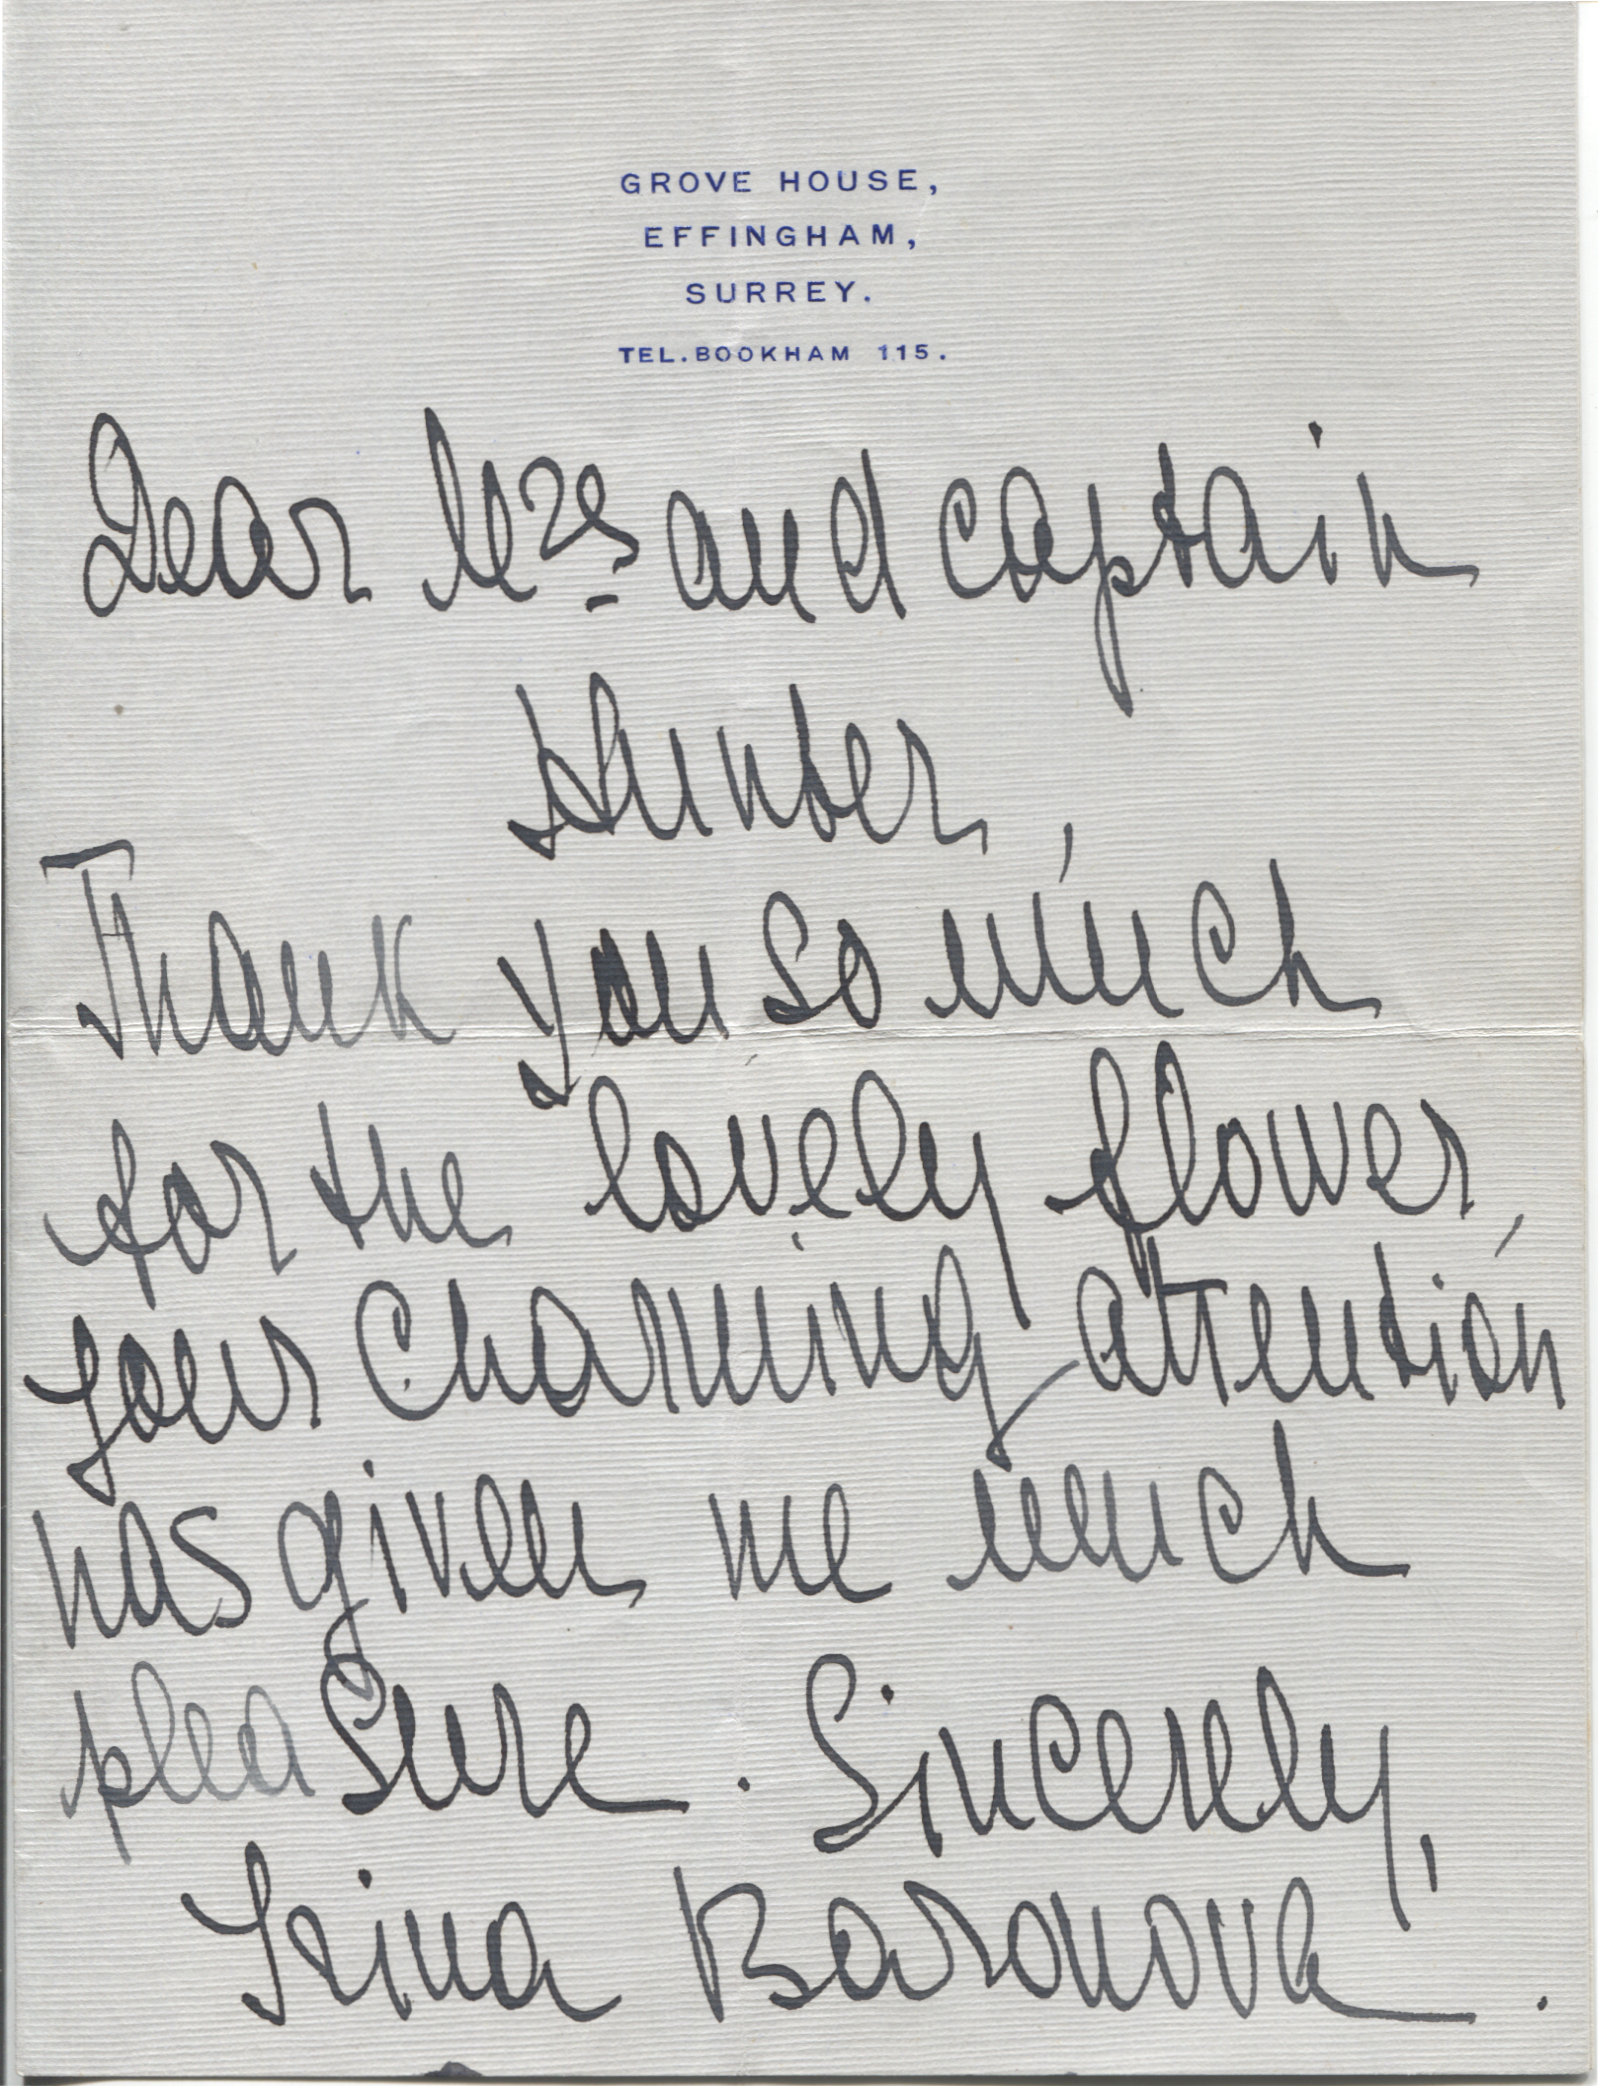 GROVE HOUSE,
EFFINGHAM,
SURREY.
TEL. BOOKHAM 115.
Dear Mrs and Captain
Hunter,
Thank you so much
for the lovely flower,
your charming attention
has given me much
pleasure. Sincerely,
Irina Baronova.